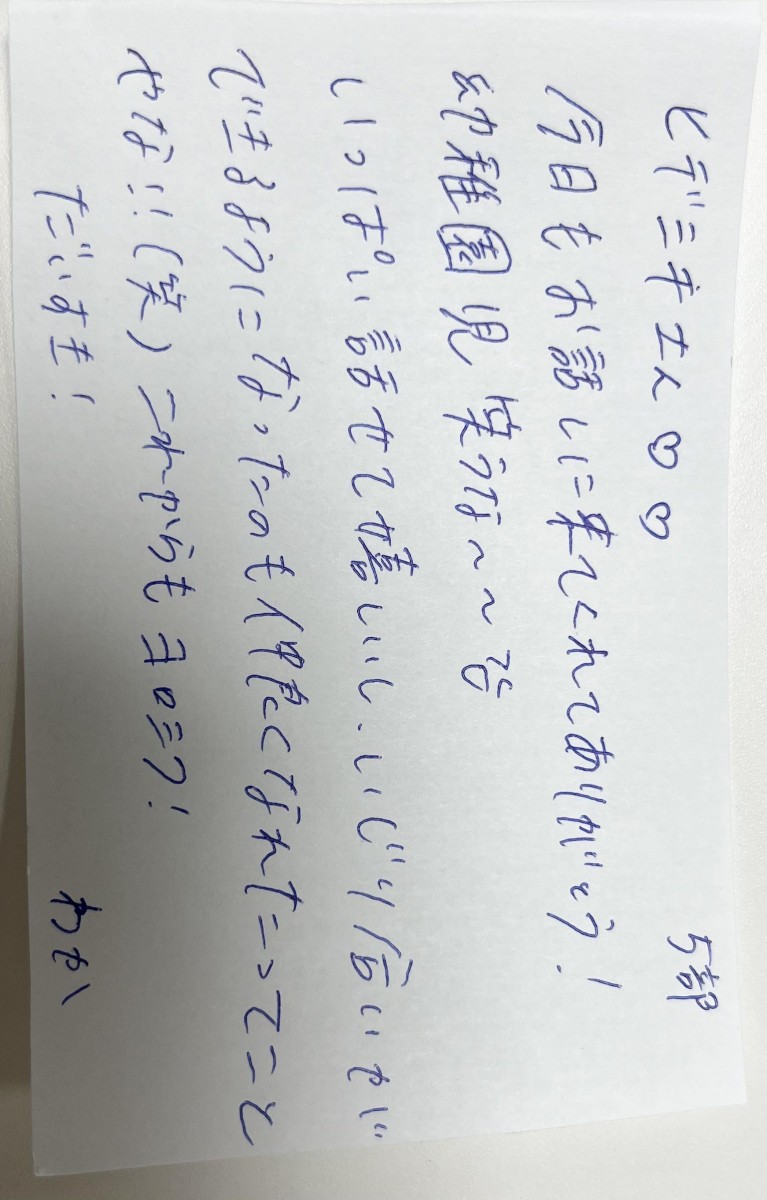 ヒデミチさん♡♡ 5部
今日もお話しに来てくれてありがとう!
幼稚園児 笑うな〜〜
いっぱい話せて嬉しいし、いじり合いが
できるようになったのも仲良くなれたってこと
やな!!(笑) これからもヨロシク!
だいすき! わか